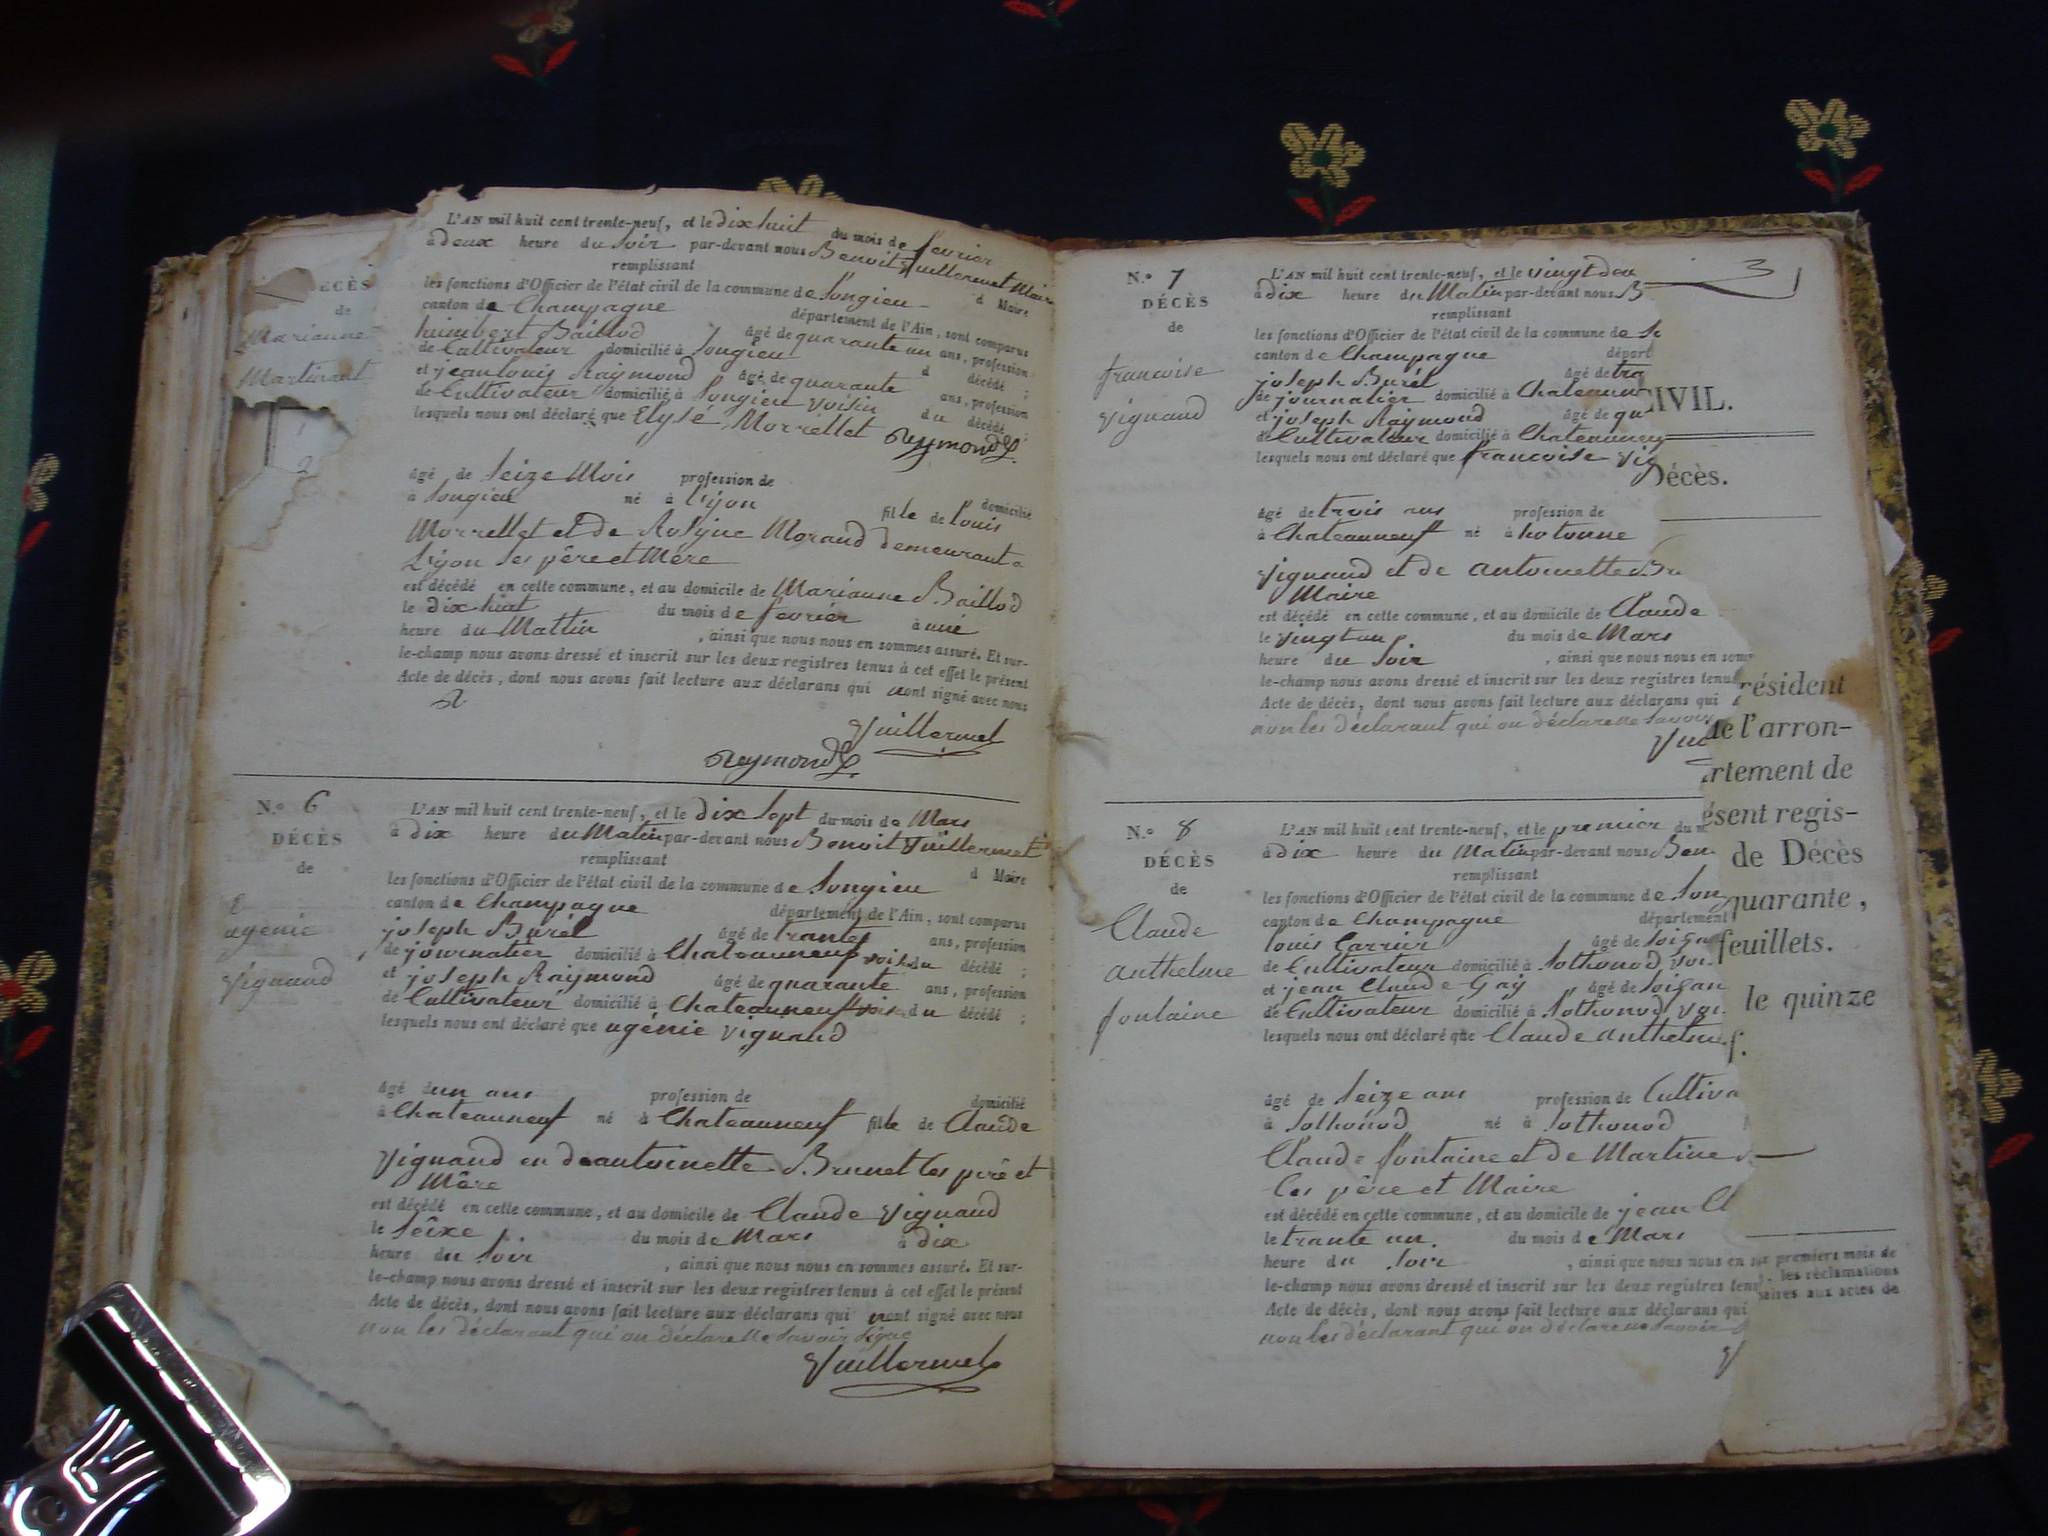 L'AN mil huit cent trente-neuf, et le dix huit du mois de fevrier
à deux heure du Soir par-devant nous Benoit Vuillermet Maire
remplissant
les fonctions d'Officier de l'état civil de la commune de Songieu d Maire
canton de Champagne département de l'Ain, sont comparus
humbert Baillod âgé de quarante un ans, profession
de Cultivateur domicilié à Songieu d décédé ;
et jean louis Raymond âgé de quarante ans, profession
de Cultivateur domicilié à Songieu voisin du décédé ;
lesquels nous ont déclaré que Elysé Morrellet Reymond
âgé de Seize Mois profession de domicilié
à Songieu né à Lyon fille de louis
Morrellet et de Rosyne Morand demeurant a
Lyon ses père et Mère
est décédé en cette commune, et au domicile de Marianne Baillod
le dix huit du mois de février à une
heure du Mattin , ainsi que nous nous en sommes assuré. Et sur-
le-champ nous avons dressé et inscrit sur les deux registres tenus à cet effet le présent
Acte de décès, dont nous avons fait lecture aux déclarans qui ont signé avec nous
Vuillermet
Reymond
ECÈS
de
Marianne
Martinant
2
N.° 6
DÉCÈS
de
Eugénie
Vignaud
L'AN mil huit cent trente-neuf, et le dix Sept du mois de Mars
à dix heure du Matin par-devant nous Benoit Vuillermet
remplissant d Maire
les fonctions d'Officier de l'état civil de la commune de Songieu
canton de Champagne département de l'Ain, sont comparus
joseph Burél âgé de trante ans, profession
de journatier domicilié à Chateauneuf voisin du décédé ;
et joseph Raymond âgé de quarante ans, profession
de Cultivateur domicilié à Chateauneuf voisin du décédé ;
lesquels nous ont déclaré que ugénie vignaud
âgé dun ans profession de domicilié
à Chateauneuf né à Chateauneuf fille de Claude
Vignaud eu de antoinette Brunet les pire et
Mère
est décédé en cette commune, et au domicile de Claude Vignaud
le Seîxe du mois de Mars à dix
heure du Soir , ainsi que nous nous en sommes assuré. Et sur-
le-champ nous avons dressé et inscrit sur les deux registres tenus à cet effet le présent
Acte de décès, dont nous avons fait lecture aux déclarans qui ont signé avec nous
non les déclarant qui on déclare ne Savoir Signe
Vuillermet
N.° 7
DÉCÈS
de
francoise
Vignaud
3
L'AN mil huit cent trente-neuf, et le vingt deu
à dix heure du Matin par-devant nous B
remplissant
les fonctions d'Officier de l'état civil de la commune de So
canton de Champagne départ
joseph Burél âgé de tra
de journatier domicilié à Chateaun
et joseph Raymond âgé de qu
de Cultivateur domicilié à Chateauneu
lesquels nous ont déclaré que francoise Vig
âgé de trois ans profession de
à Chateauneuf né à hotonne
Vignaud et de antoinette Bru
Maire
est décédé en cette commune, et au domicile de Claude
le vingt un du mois de Mars
heure du Soir , ainsi que nous nous en som
le-champ nous avons dressé et inscrit sur les deux registres tenu
Acte de décès, dont nous avons fait lecture aux déclarans qui
non les déclarant qui on déclare ne Savoir
Vui
N.° 8
DÉCÈS
de
Claude
anthelme
fontaine
L'AN mil huit cent trente-neuf, et le premier du m
à dix heure du Matin par-devant nous Ben
remplissant
les fonctions d'Officier de l'état civil de la commune de Son
canton de Champagne département
louis Carrier âgé de Soisan
de Cultivateur domicilié à Sothonod voi
et jean Claude Gay âgé de Soisan
de Cultivateur domicilié à Sothonod voi
lesquels nous ont déclaré que Claude anthelme f
âgé de Seize ans profession de Cultiva
à Sothonod né à Sothonod
Claude fontaine et de Martine
les père et Maire
est décédé en cette commune, et au domicile de jean Cl
le trante un du mois de Mars
heure du Soir , ainsi que nous nous en
le-champ nous avons dressé et inscrit sur les deux registres tenu
Acte de décès, dont nous avons fait lecture aux déclarans qui
non les déclarant qui on déclare ne Savoir S
V
CIVIL.
Décès.
résident
de l'arron-
rtement de
ésent regis-
de Décès
quarante,
feuillets.
le quinze
premiers mois de
les réclamations
aires aux actes de